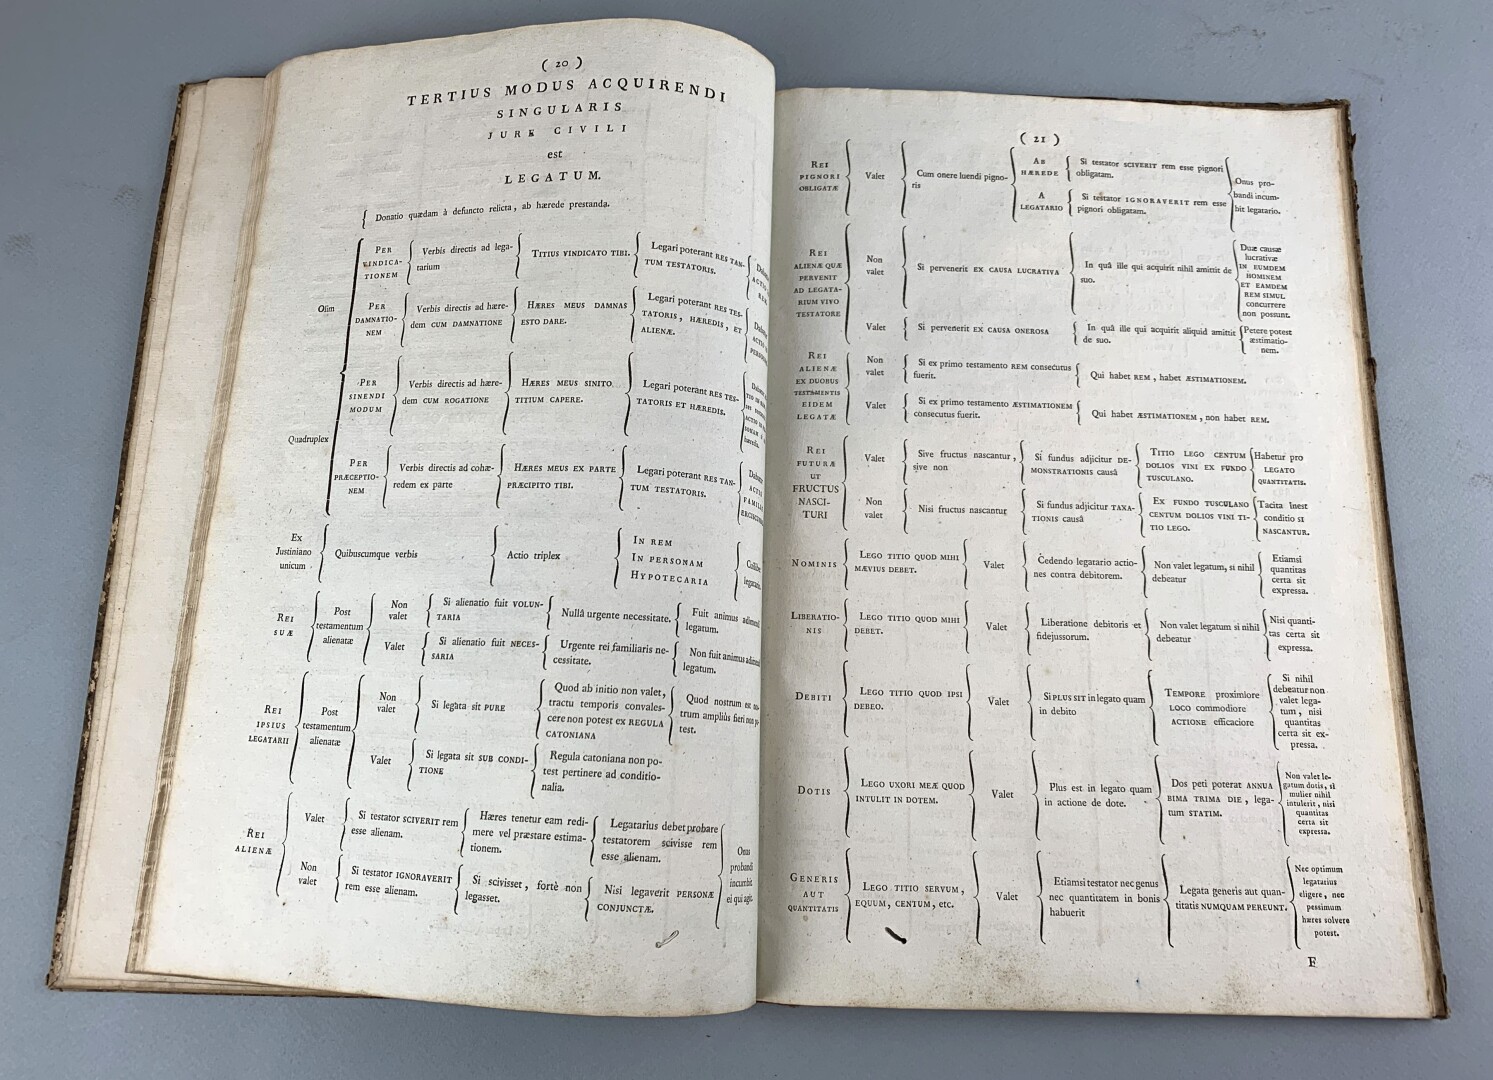 ( 20 )
TERTIUS MODUS ACQUIRENDI
SINGULARIS
JURE CIVILI
est
LEGATUM.
Donatio quædam à defuncto relicta, ab hærede præstanda.
Olim
Quadruplex
PER
VINDICA-
TIONEM
Verbis directis ad lega-
tarium
TITIUS VINDICATO TIBI.
Legari poterant RES TAN-
TUM TESTATORIS.
PER
DAMNATIO-
NEM
Verbis directis ad hære-
dem CUM DAMNATIONE
HÆRES MEUS DAMNAS
ESTO DARE.
Legari poterant RES TES-
TATORIS, HÆREDIS, ET
ALIENÆ.
PER
SINENDI
MODUM
Verbis directis ad hære-
dem CUM ROGATIONE
HÆRES MEUS SINITO
TITIUM CAPERE.
Legari poterant RES TES-
TATORIS ET HÆREDIS.
PER
PRÆCEPTIO-
NEM
Verbis directis ad cohæ-
redem ex parte
HÆRES MEUS EX PARTE
PRÆCIPITO TIBI.
Legari poterant RES TAN-
TUM TESTATORIS.
Ex
Justiniano
unicum
Quibuscumque verbis
Actio triplex
IN REM
IN PERSONAM
HYPOTECARIA
REI
SUÆ
Post
testamentum
alienatæ
Non
valet
Si alienatio fuit VOLUN-
TARIA
Nullâ urgente necessitate.
Fuit animus
legatum.
Valet
Si alienatio fuit NECES-
SARIA
Urgente rei familiaris ne-
cessitate.
Non fuit animus
legatum.
REI
IPSIUS
LEGATARII
Post
testamentum
alienatæ
Non
valet
Si legata sit PURE
Quod ab initio non valet,
tractu temporis convales-
cere non potest ex REGULA
CATONIANA
Quod nostrum est
trum ampliùs fieri non
test.
Valet
Si legata sit SUB CONDI-
TIONE
Regula catoniana non po-
test pertinere ad conditio-
nalia.
REI
ALIENÆ
Valet
Si testator SCIVERIT rem
esse alienam.
Hæres tenetur eam redi-
mere vel præstare estima-
tionem.
Legatarius debet probare
testatorem scivisse rem
esse alienam.
Non
valet
Si testator IGNORAVERIT
rem esse alienam.
Si scivisset, fortè non
legasset.
Nisi legaverit PERSONÆ
CONJUNCTÆ.
Onus
probandi
incumbit
ei qui agit.
( 21 )
REI
PIGNORI
OBLIGATÆ
Valet
Cum onere luendi pigno-
ris
AB
HÆREDE
Si testator SCIVERIT rem esse pignori
obligatam.
A
LEGATARIO
Si testator IGNORAVERIT rem esse
pignori obligatam.
Onus pro-
bandi incum-
bit legatario.
REI
ALIENÆ QUÆ
PERVENIT
AD LEGATA-
RIUM VIVO
TESTATORE
Non
valet
Si pervenerit EX CAUSA LUCRATIVA
In quâ ille qui acquirit nihil amittit de
suo.
Duæ causæ
lucrativæ
IN EUMDEM
HOMINEM
ET EAMDEM
REM SIMUL
concurrere
non possunt.
Valet
Si pervenerit EX CAUSA ONEROSA
In quâ ille qui acquirit aliquid amittit
de suo.
Petere potest
æstimatio-
nem.
REI
ALIENÆ
EX DUOBUS
TESTAMENTIS
EIDEM
LEGATÆ
Non
valet
Si ex primo testamento REM consecutus
fuerit.
Qui habet REM, habet ÆSTIMATIONEM.
Valet
Si ex primo testamento ÆSTIMATIONEM
consecutus fuerit.
Qui habet ÆSTIMATIONEM, non habet REM.
REI
FUTURÆ
UT
FRUCTUS
NASCI-
TURI
Valet
Sive fructus nascantur,
sive non
Si fundus adjicitur DE-
MONSTRATIONIS causâ
TITIO LEGO CENTUM
DOLIOS VINI EX FUNDO
TUSCULANO.
Habetur pro
LEGATO
QUANTITATIS.
Non
valet
Nisi fructus nascantur
Si fundus adjicitur TAXA-
TIONIS causâ
EX FUNDO TUSCULANO
CENTUM DOLIOS VINI TI-
TIO LEGO.
Tacita inest
conditio SI
NASCANTUR.
NOMINIS
LEGO TITIO QUOD MIHI
MÆVIUS DEBET.
Valet
Cedendo legatario actio-
nes contra debitorem.
Non valet legatum, si nihil
debeatur
Etiamsi
quantitas
certa sit
expressa.
LIBERATIO-
NIS
LEGO TITIO QUOD MIHI
DEBET.
Valet
Liberatione debitoris et
fidejussorum.
Non valet legatum si nihil
debeatur
Nisi quanti-
tas certa sit
expressa.
DEBITI
LEGO TITIO QUOD IPSI
DEBEO.
Valet
Si PLUS SIT in legato quam
in debito
TEMPORE proximiore
LOCO commodiore
ACTIONE efficaciore
Si nihil
debeatur non
valet lega-
tum, nisi
quantitas
certa sit ex-
pressa.
DOTIS
LEGO UXORI MEÆ QUOD
INTULIT IN DOTEM.
Valet
Plus est in legato quam
in actione de dote.
Dos peti poterat ANNUA
BIMA TRIMA DIE, lega-
tum STATIM.
Non valet le-
gatum dotis, si
mulier nihil
intulerit, nisi
quantitas
certa sit
expressa.
GENERIS
AUT
QUANTITATIS
LEGO TITIO SERVUM,
EQUUM, CENTUM, etc.
Valet
Etiamsi testator nec genus
nec quantitatem in bonis
habuerit
Legata generis aut quan-
titatis NUMQUAM PEREUNT.
Nec optimum
legatarius
eligere, nec
pessimum
hæres solvere
potest.
F